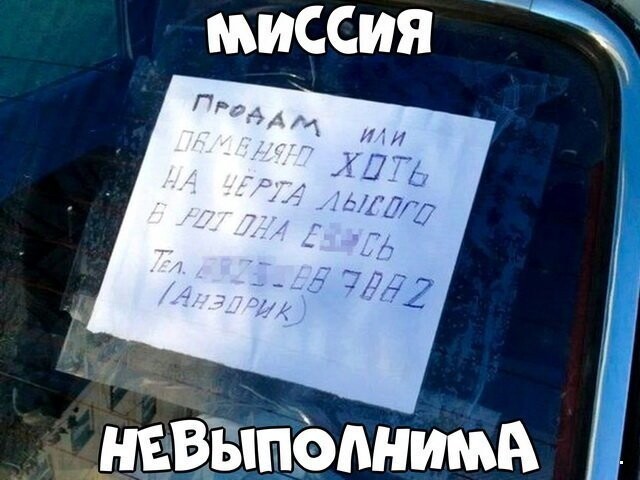 МИССИЯ
ПРОДАМ ИЛИ
ОБМЕНЯЮ ХОТЬ
НА ЧЁРТА ЛЫСОГО
В РОТ ОНА
Тел. 887882
(АНЗОРИК)
НЕВЫПОЛНИМА